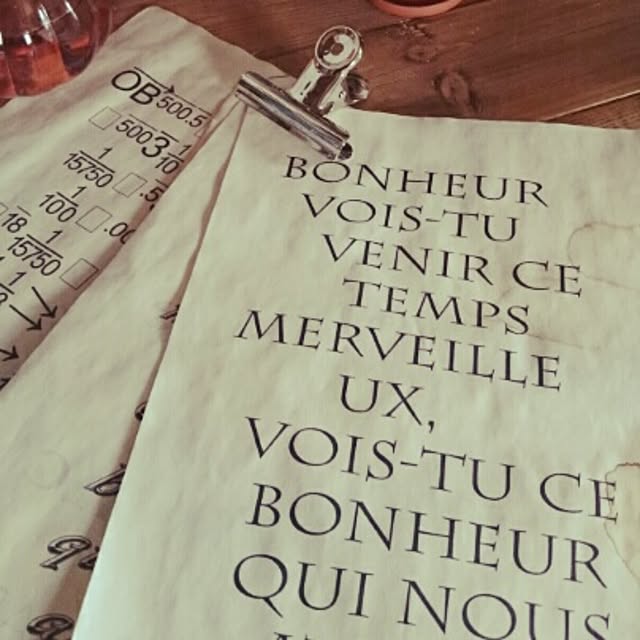 BONHEUR
VOIS-TU
VENIR CE
TEMPS
MERVEILLE
UX,
VOIS-TU CE
BONHEUR
QUI NOUS
OB500.5
5003
1/15750
1/100
18 1/15750